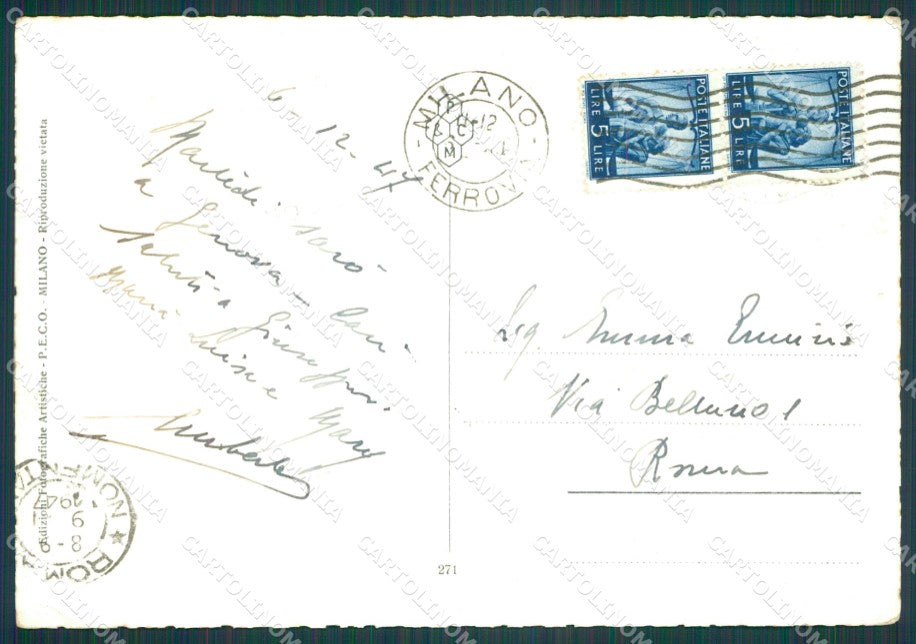 6
12 - 47
Martedì sarò
a Genova - Cari
saluti a Giuseppina
Maria Luisa e Mary
Umberto
MILANO
11-12
FERROVIA
POSTE ITALIANE
LIRE 5 LIRE
POSTE ITALIANE
LIRE 5 LIRE
Sig Emma
Via Belluno 1
Roma
Edizioni Fotografiche Artistiche - P.E.C.O. - MILANO - Riproduzione vietata
ROMA NOMENTANO
8 - 9
271
CARTOLINOMANIA